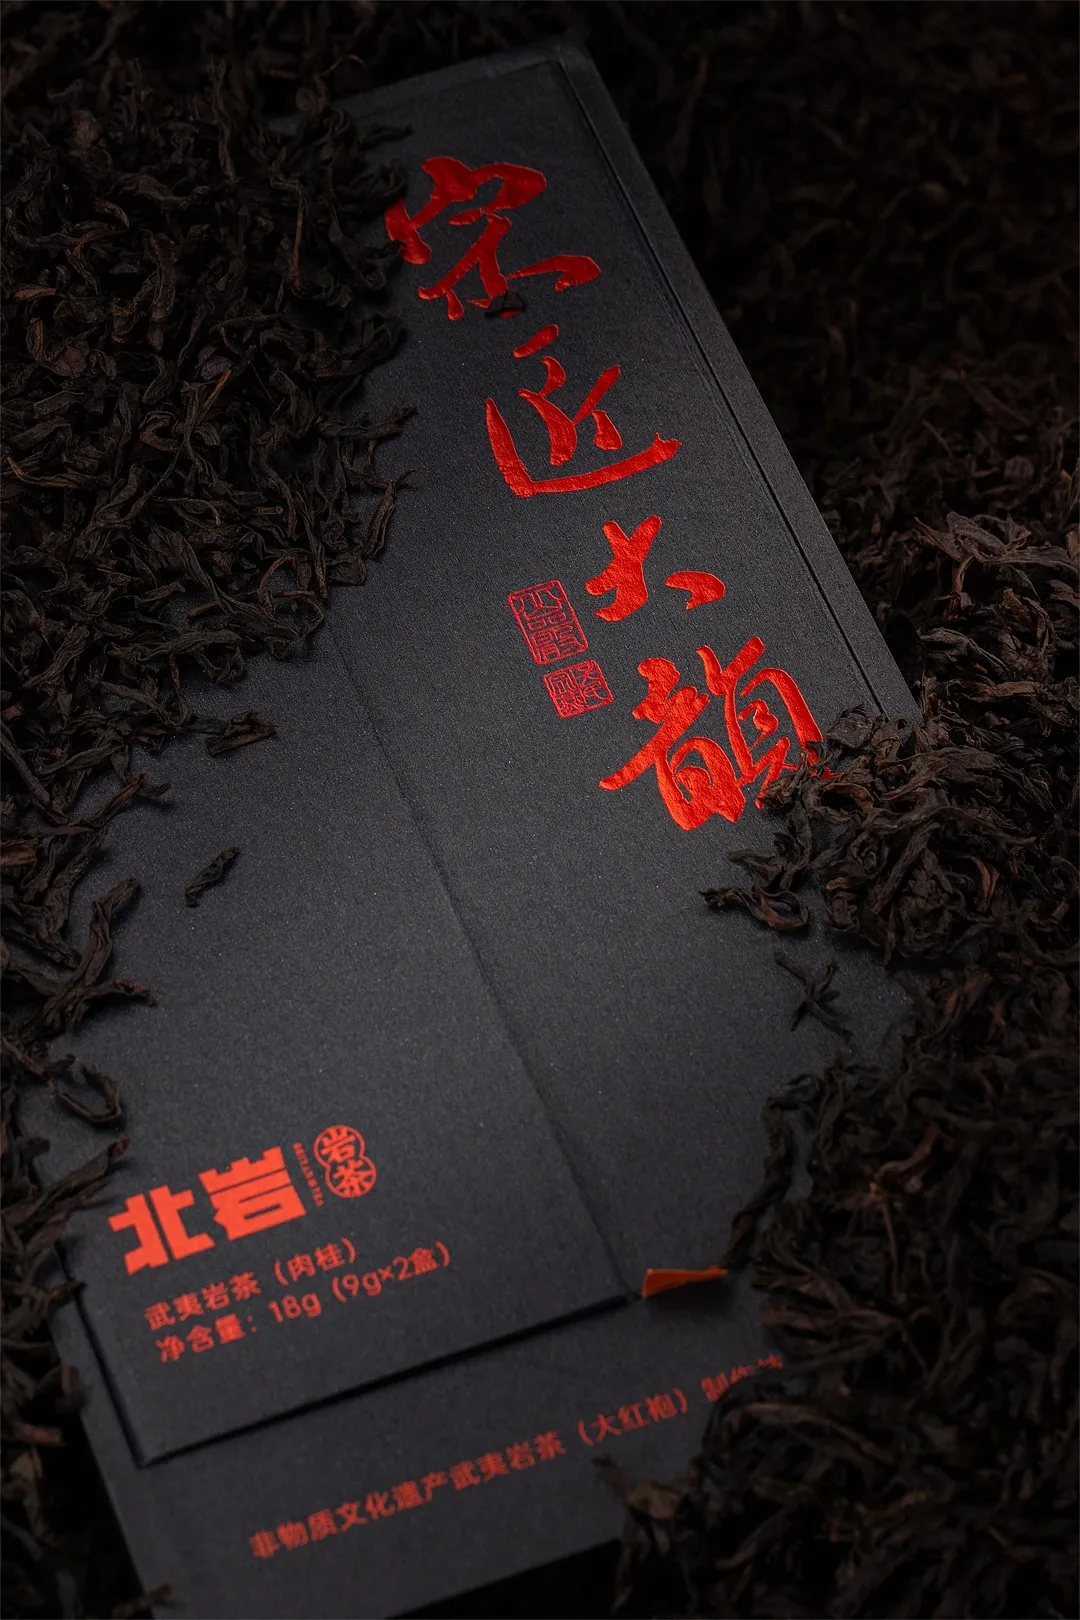 宗匠大韻
北岩
岩茶
武夷岩茶（肉桂）
净含量：18g（9g×2盒）
非物质文化遗产武夷岩茶（大红袍）制作